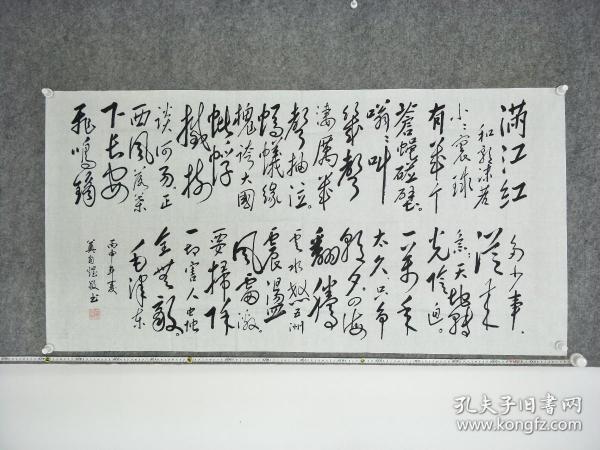 满江红
和郭沫若
小小寰球
有几个
苍蝇碰壁。
嗡嗡叫
几声
凄厉几
声抽泣。
蚂蚁缘
槐夸大国
蚍蜉
撼树
谈何易。正
西风落叶
下长安
飞鸣镝
多少事、
从来
急。天地转
光阴迫。
一万年
太久只争
朝夕四海
翻腾
云水怒五洲
震荡
风雷激。
要扫除
一切害人虫
全无敌。
毛泽东
丙申年夏
敬书
孔夫子旧书网
www.kongfz.com